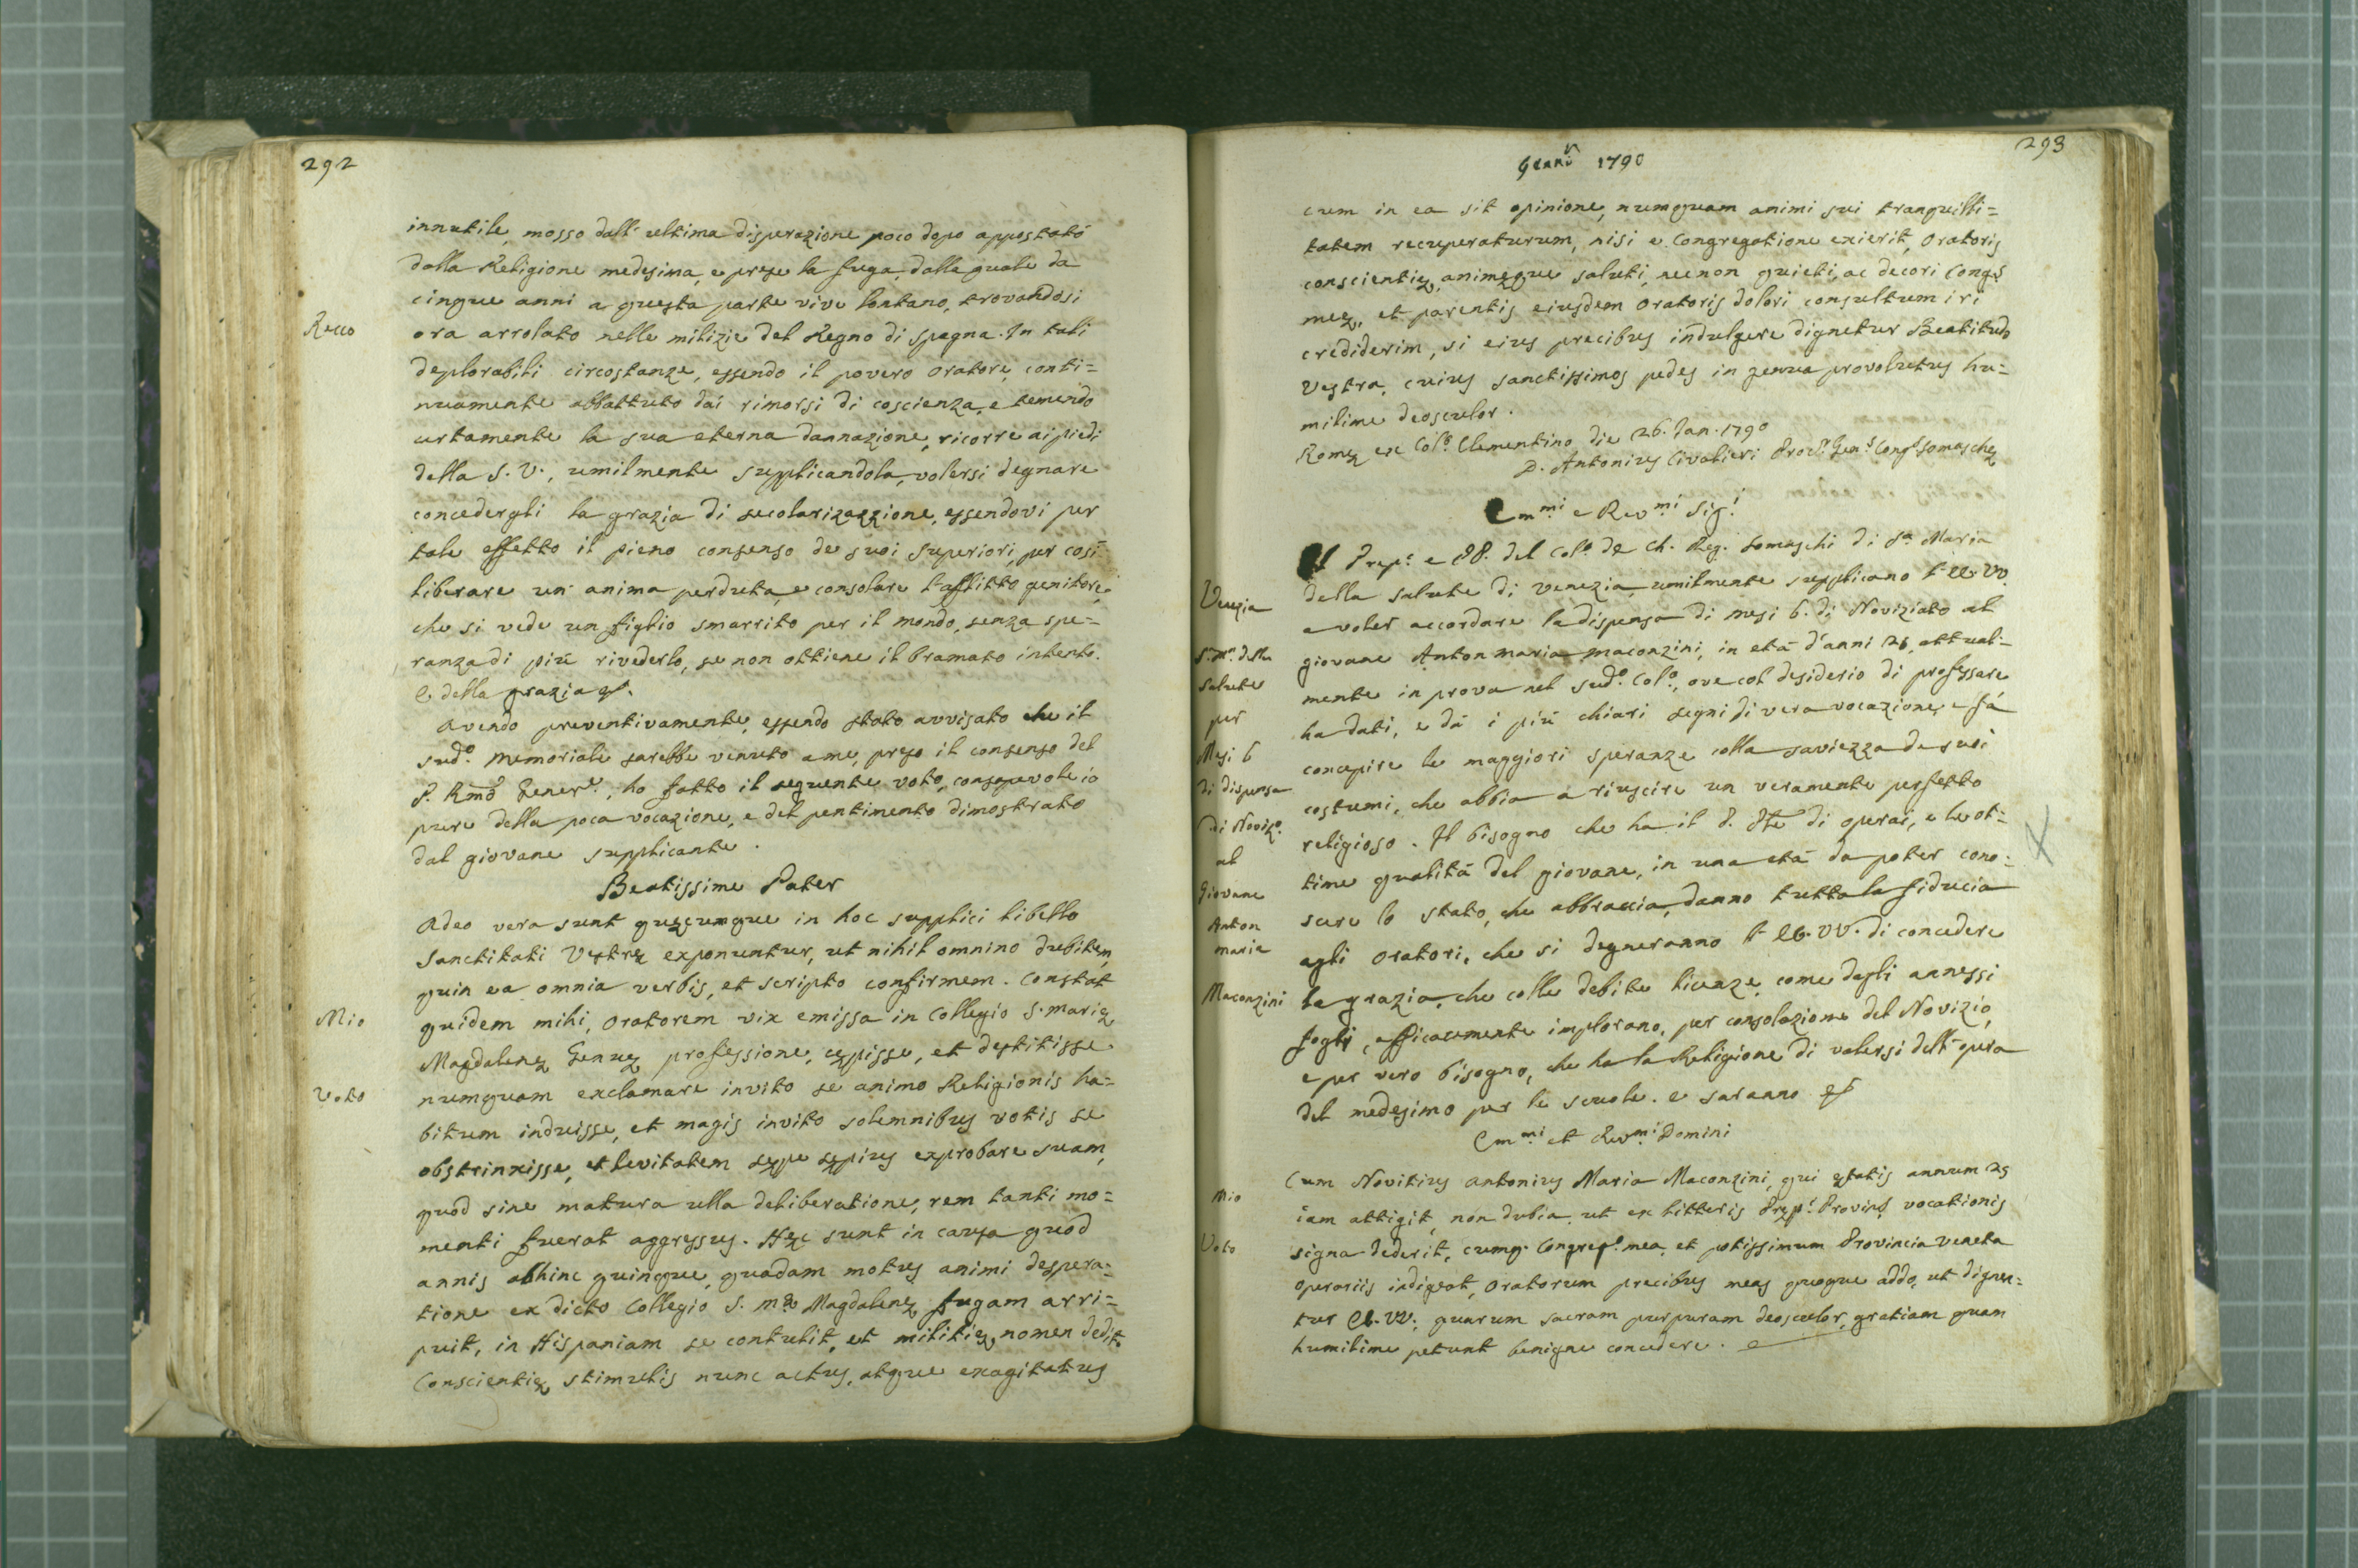 292
innutile, mosso dall' ultima disperazione poco dopo appostatò
dalla Religione medesima, e prese la fuga, dalla quale da
cinque anni a questa parte vive lontano, trovandosi
Recco
ora arrolato nelle milizie del Regno di Spagna. In tali
deplorabili circostanze, essendo il povero oratore, conti=
nuamente abbattuto dai rimorsi di coscienza, e temendo
certamente la sua eterna dannazione, ricorre ai piedi
della S. V., umilmente supplicandola, volersi degnare
concedergli la grazia di secolarizazzione, essendovi per
tale effetto il pieno consenso de suoi Superiori, per così
liberare un' anima perduta, e consolare l'afflitto genitore,
che si vede un figlio smarrito per il mondo, senza spe=
ranza di più rivederlo, se non ottiene il bramato intento.
e della grazia
Avendo preventivamente, essendo stato avvisato che il
sud.o Memoriale sarebbe venuto a me, preso il consenso del
P. Rmõ Gener.e, ho fatto il seguente voto, consapevole io
pure della poca vocazione, e del pentimento dimostrato
dal giovane supplicante.
Beatissime Pater
Adeo vera sunt quæcumque in hoc supplici libello
Sanctitati Vestræ exponuntur, ut nihil omnino dubitem,
quin ea omnia verbis, et scripto confirmem. Constat
Mio
quidem mihi, Oratorem vix emissa in Collegio S. Mariæ
Magdalenæ Genuæ professione, cæpisse, et destitisse
Voto
numquam exclamare invito se animo Religionis ha=
bitum induisse, et magis invito solemnibus votis se
obstrinxisse, et levitatem sæpe sæpius exprobare suam,
quod sine matura ulla deliberatione, rem tanti mo=
menti fuerat aggressus. Hæc sunt in causa quod
annis abhinc quinque, quadam motus animi despera=
tione ex dicto Collegio S. Mæ Magdalenæ, fugam arri=
puit, in Hispaniam se contulit, et militiæ, nomen dedit.
Conscientiæ stimulis nunc actus, atque exagitatus
293
Genn.o 1790
cum in ea sit opinione, numquam animi sui tranquilli=
tatem recuperaturum, nisi e Congregatione exierit, Oratoris
conscientiæ, animæque saluti, necnon quieti, ac decori Cong.s
meæ, et parentis eiusdem Oratoris dolori consultum iri
crediderim, si eius precibus indulgere dignetur Beatitudo
Vestra, cuius sanctissimos pedes in genua provolutus hu=
milime deosculor.
Romæ ex Col.o Clementino die 26. Jan. 1790
D. Antonius Civalieri Proc.r Gen.s Cong.s Somaschæ
Emm.mi e Rev.mi Sig.i
Il Prep.o e PP. del Col.o de Ch. Reg. Somaschi di S.a Maria
Venezia
della Salute di Venezia, umilmente supplicano l' EE. VV.
a voler accordare la dispensa di mesi 6. di Noviziato al
S. M.a della
giovane Antonmaria Maconzini, in età d'anni 25, attual=
Salute
mente in prova nel sud.o Col.o, ove col desiderio di professare
per
ha dati, e dà i più chiari segni di vera vocazione, e fà
Mesi 6
concepire le maggiori speranze colla saviezza de suoi
di dispensa
costumi, che abbia a riuscire un veramente perfetto
di Noviz.o
religioso. Il bisogno che ha il di operai, e le ot=
al
time qualità del giovane, in una età da poter cono=
Giovane
scere lo stato, che abbraccia, danno tutta la fiducia
Anton
maria
agli Oratori, che si degneranno l' EE. VV. di concedere
Maconzini
la grazia, che colle debite licenze, come dagli annessi
fogli, efficacemente implorano, per consolazione del Novizio,
e per vero bisogno, che ha la Religione di valersi dell' opera
del medesimo per le scuole. e saranno
Emm.mi et Rev.mi Domini
Cum Novitius Antonius Maria Maconzini, qui ætatis annum 25
Mio
iam attigit, non dubia, ut ex litteris Præp.i Provinc.s vocationis
Voto
signa dederit, cumq. Congreg.o mea, et potissimum Provincia Veneta
operariis indigeat, Oratorum precibus meas quoque addo, ut dignen=
tur EE. VV., quarum sacram purpuram deosculor, gratiam quam
humilime petunt benigne concedere.